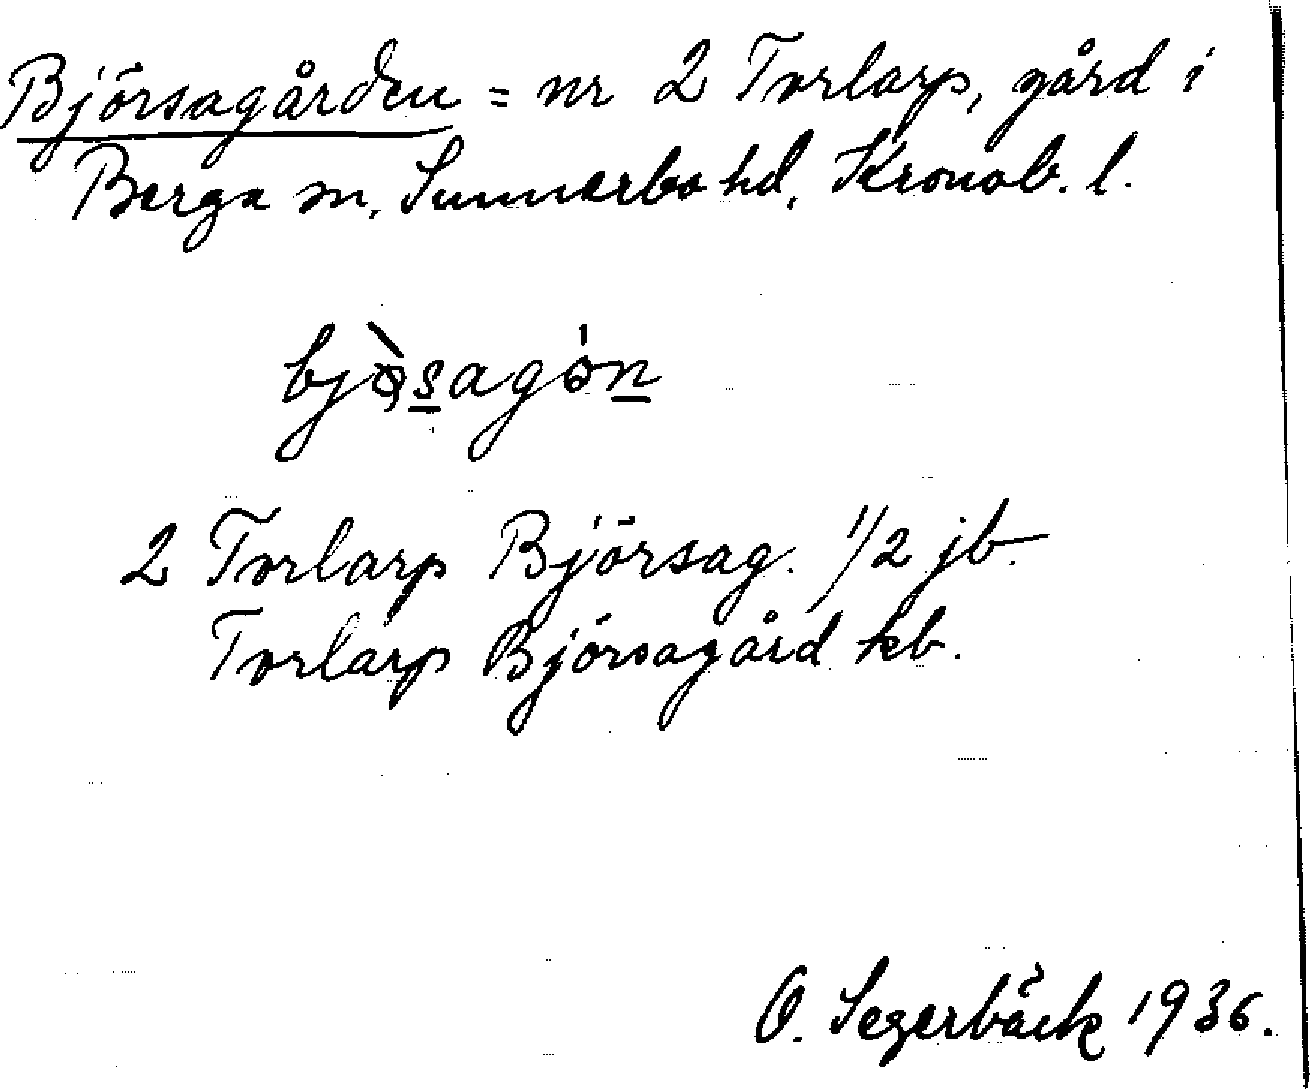 Björsagården = nr 2 Torlarp, gård i
Berga sn, Sunnerbo hd, Kronob. l.
2 Torlarp Björsag. 1/2 jb.
Torlarp Björsagård kb.
O. Segerbäck 1936.